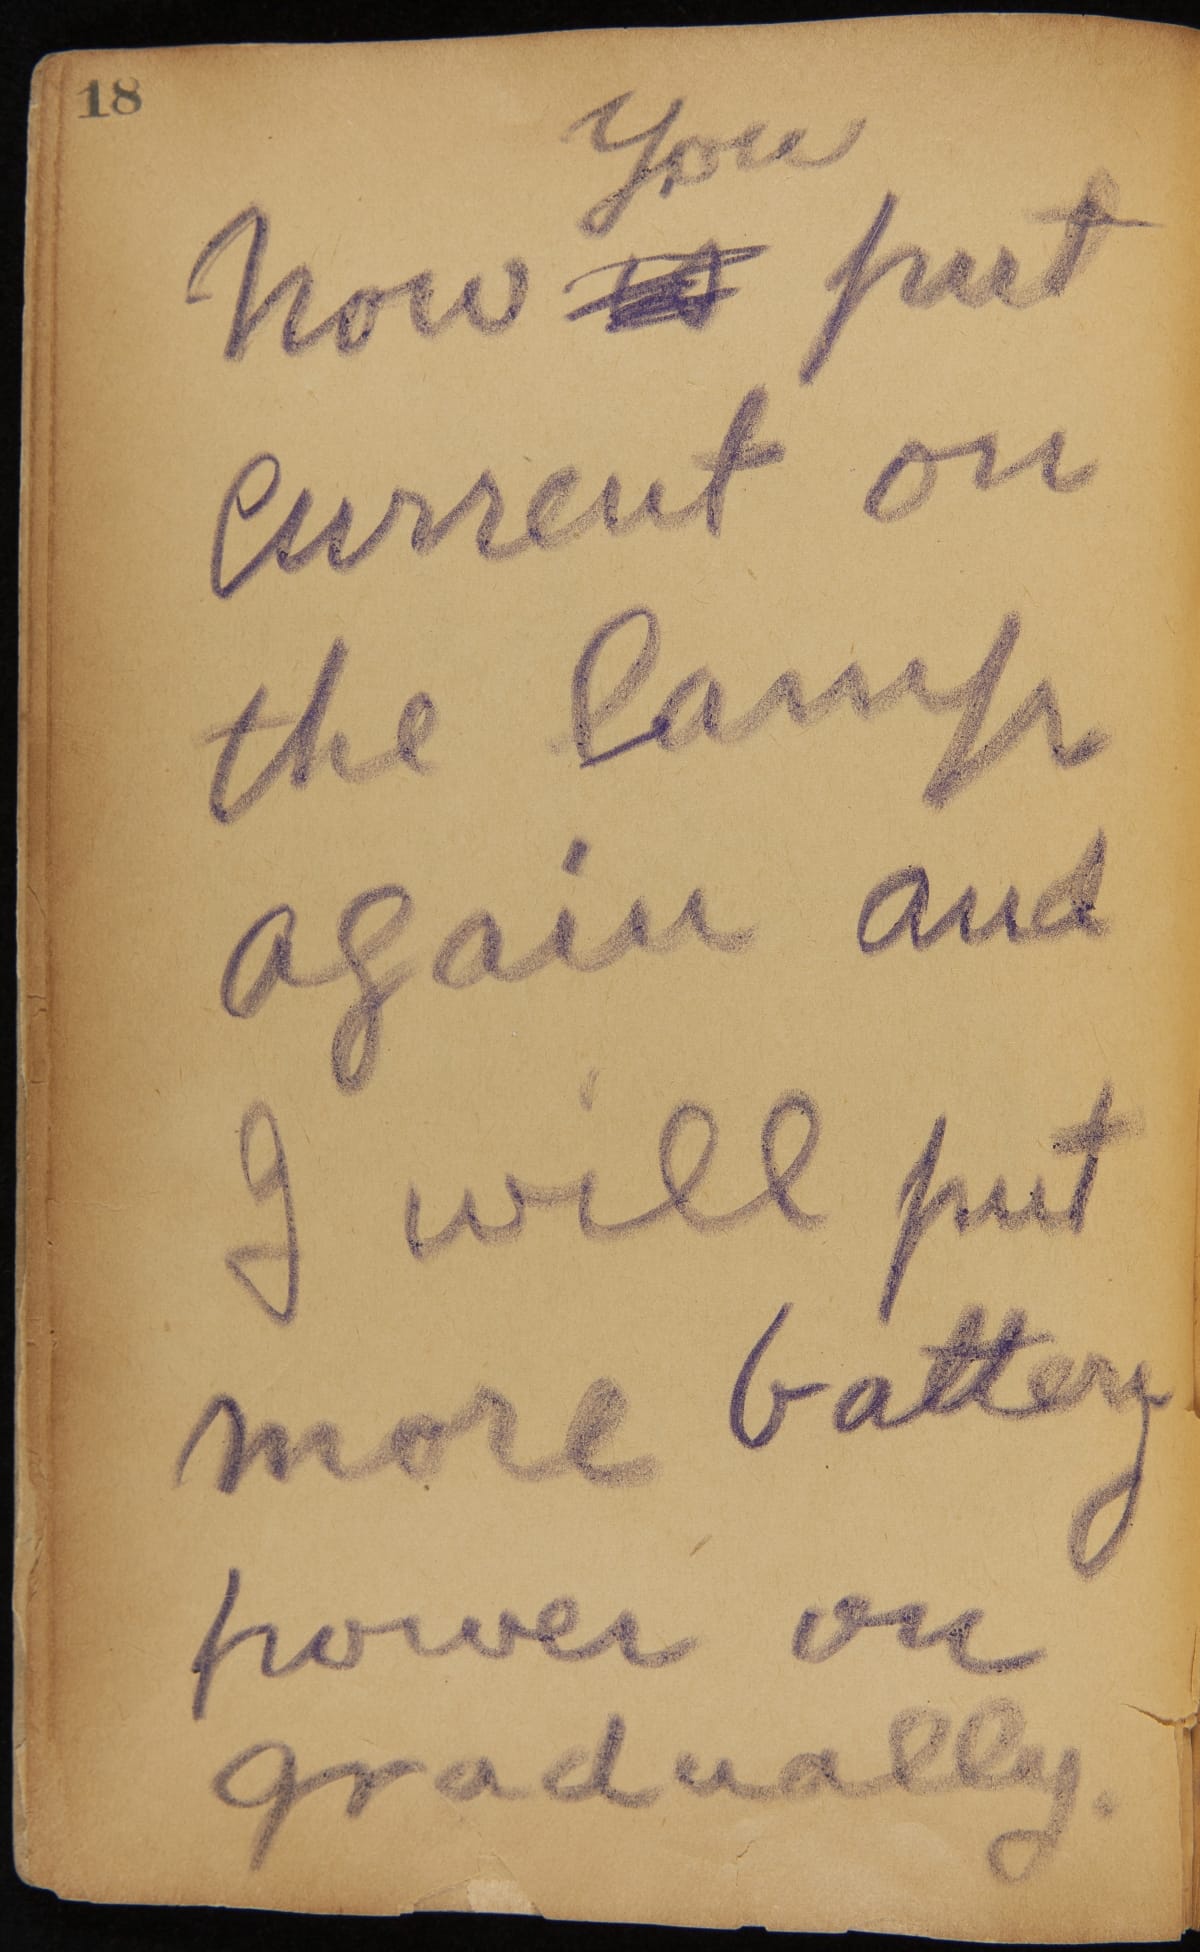 18
You
Now put
current on
the lamp
again and
I will put
more battery
power on
gradually.